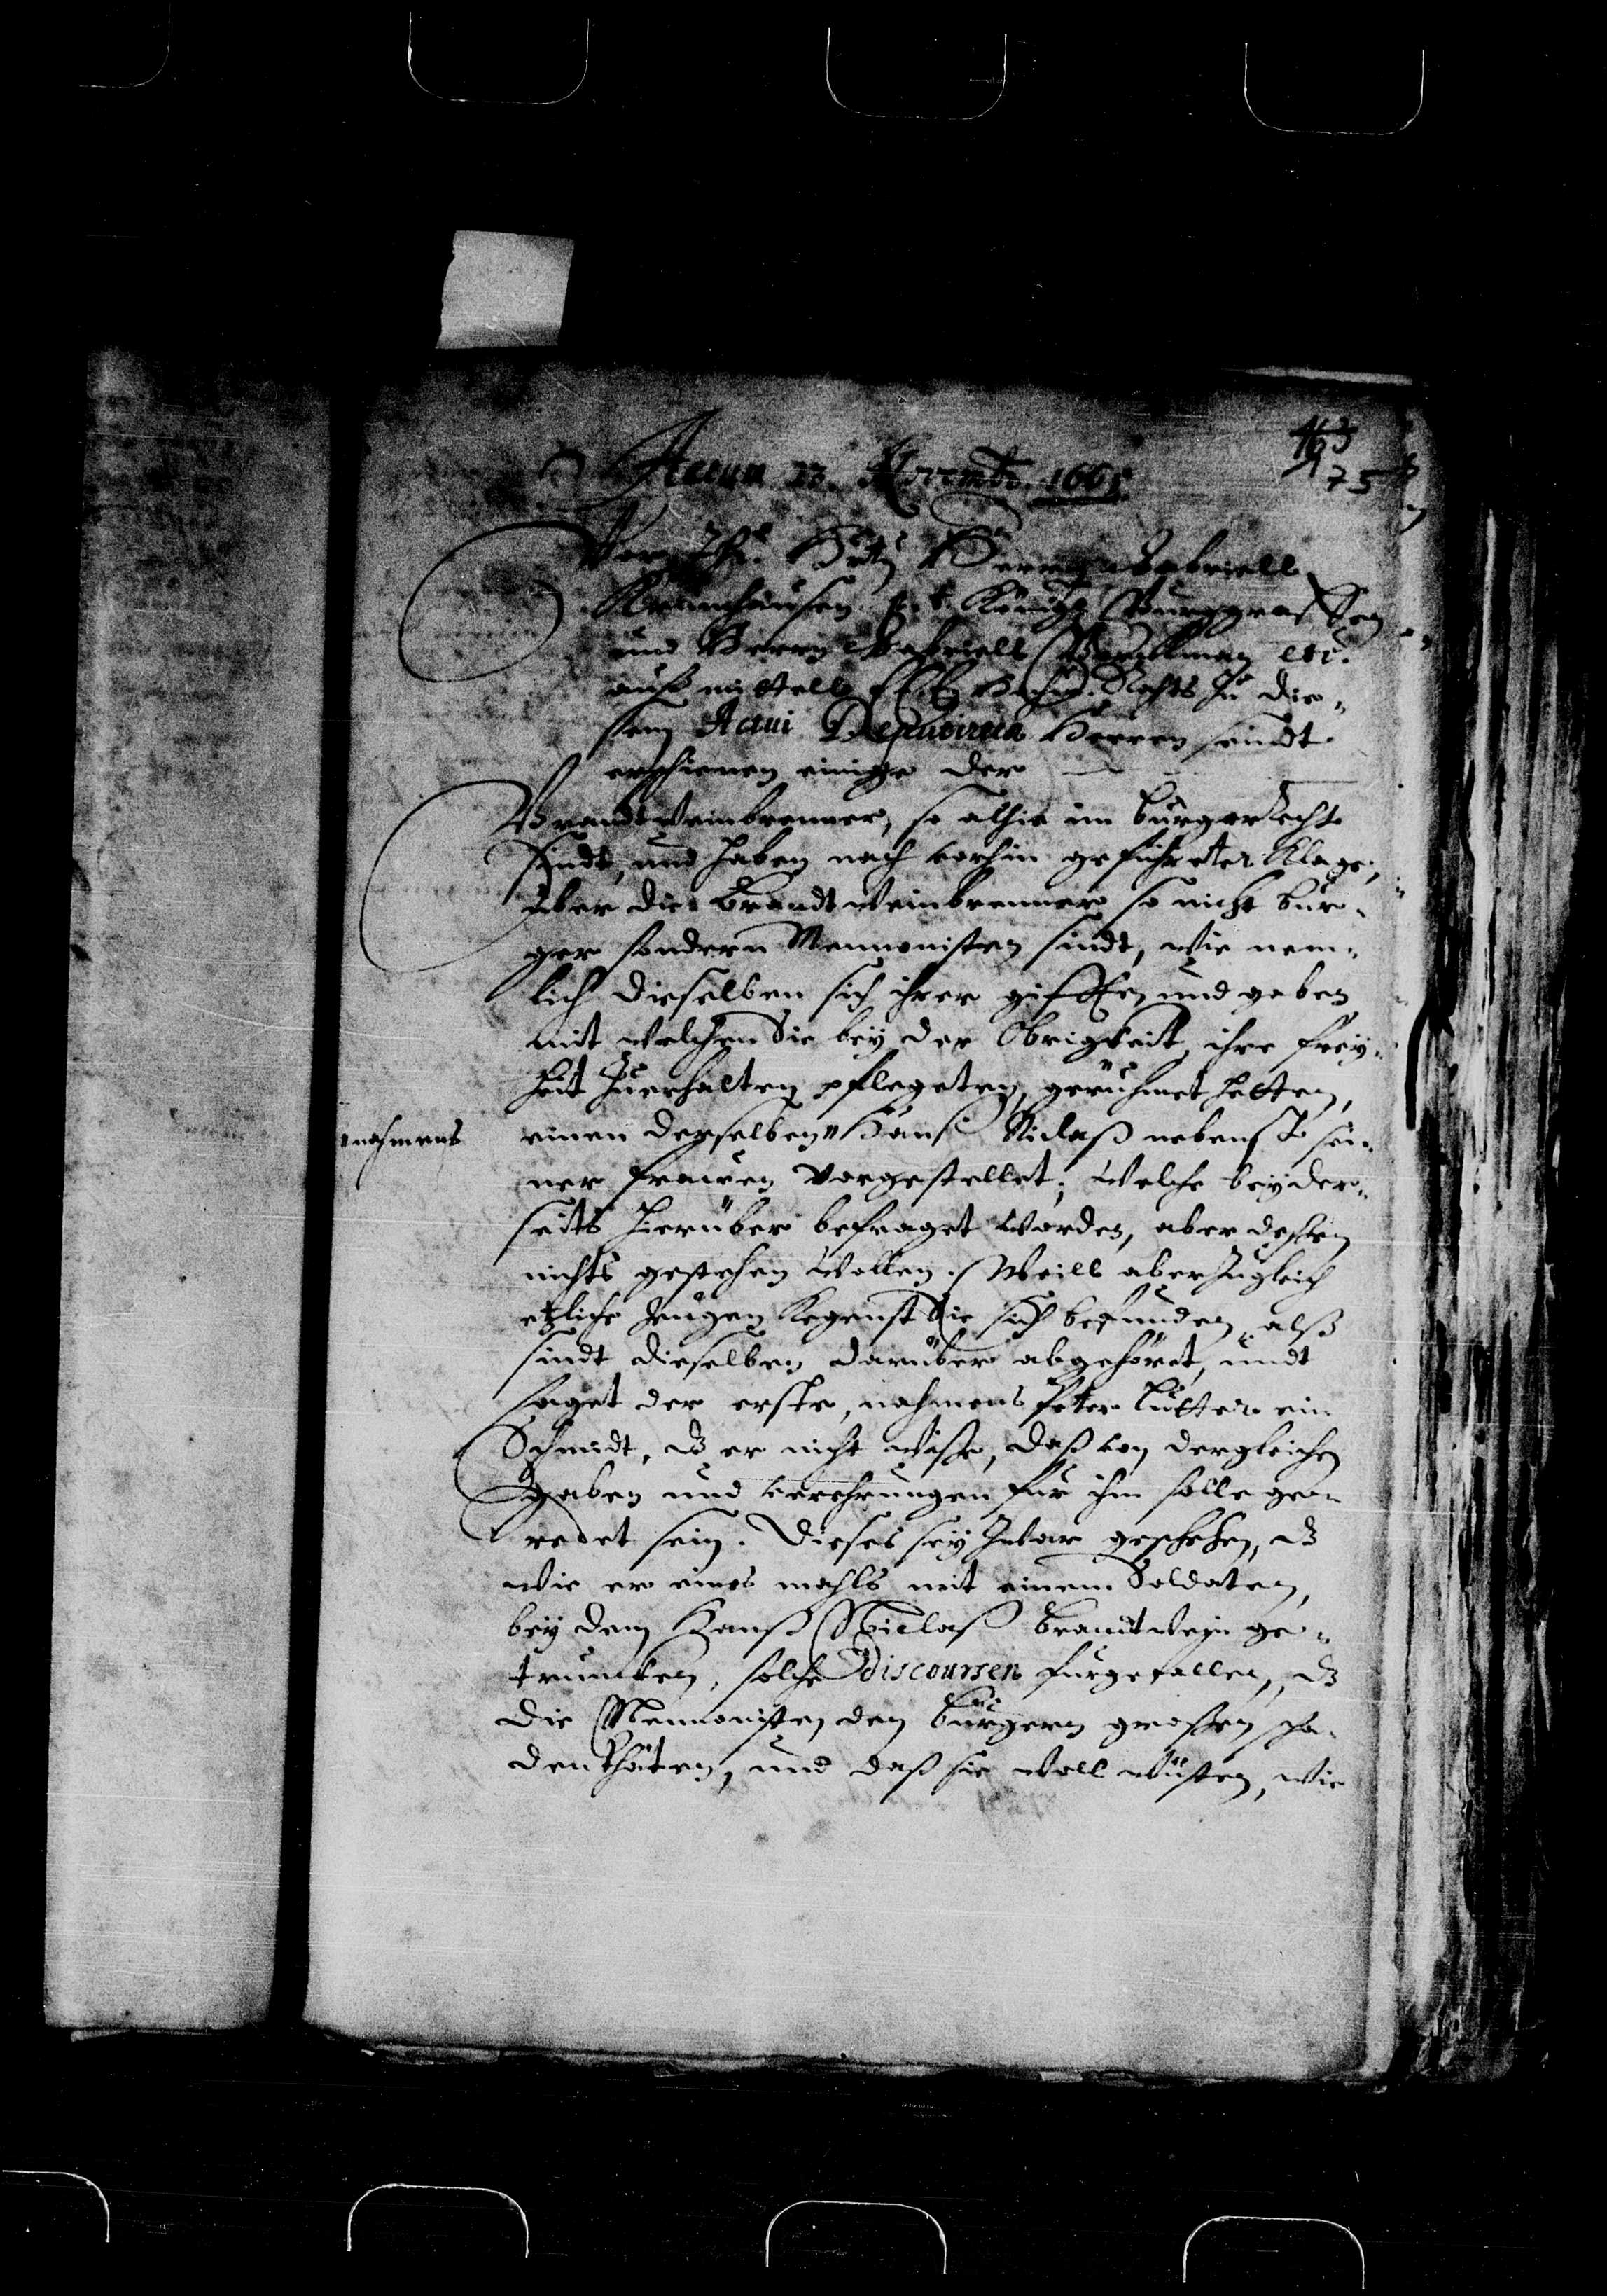 163
175
Actum 23. Novembr. 1665.
Vor Ihr. Herrn Gabriell
Krumhausen p. t. Königl. Burggraffen
und Herrn Gabriell etc.
auß mittell E. E. Hochw. Rahts zu die-
sem Actui Deputirten Herren seindt
erschienen einige der
Brandtweinbrenner, so alhie im Bürgerrecht
sindt, und haben nach vorhin geführeter Klage,
über die Brandtweinbrenner so nicht Bür-
ger sondern Mennonisten sindt, wie nem-
lich dieselben sich ihrer gifften und gaben
mit welchen Sie bey der Obrigkeit, ihre frey-
heit zuerhalten pflegeten, gerühmet hetten,
nahmens
einen derselben Hanß Niclaß nebenst sei-
ner frawen vorgestellet; welche beyder-
seits hierüber befraget worden, aber deßen
nichts gestehen wollen. Weill aber zugleich
etzliche zeugen kegenst Sie sich befunden, alß
sindt dieselben darüber abgehöret, undt
saget der erste, nahmens Peter Lütter ein
Schmidt, dz er nicht wiße, daß von dergleichen
gaben und verehrungen für ihm solle ge-
redet sein. Dieses sey zwar geschehen, dz
wie er eines mahls mit einem Soldaten,
bey dem Hanß Niclaß brantwein ge-
truncken, solche discoursen fürgefallen, dz
die Mennonisten den bürgern großen scha-
den thäten, und daß sie woll wüsten, wie